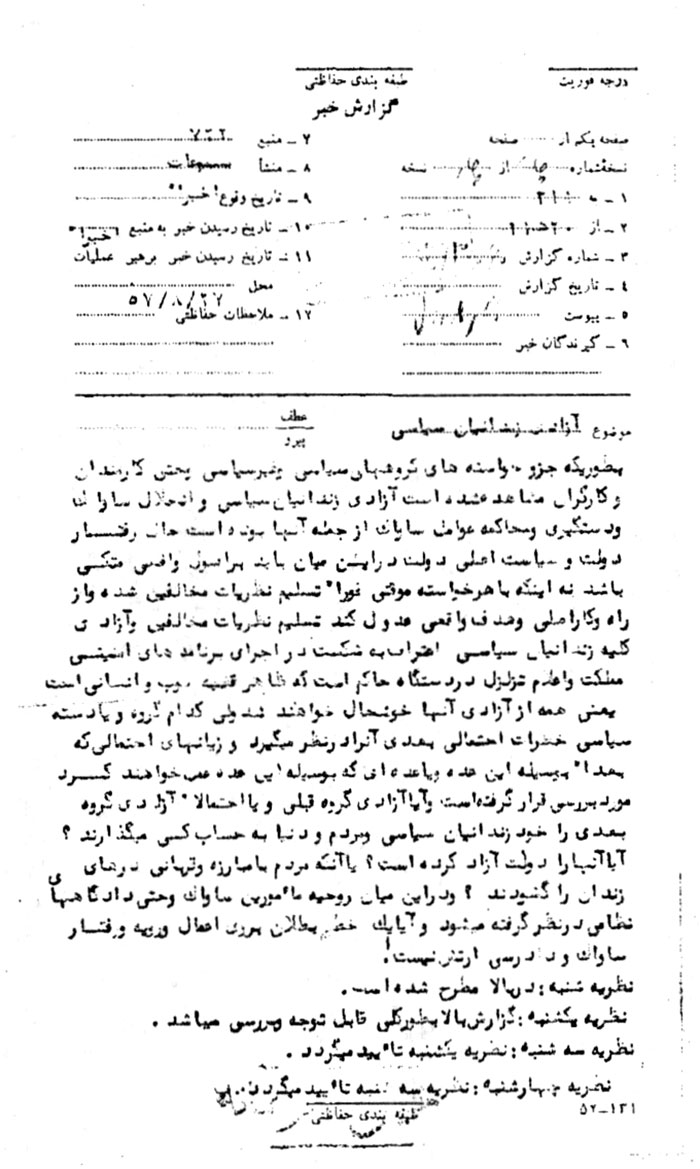 درجه فوریت
طبقه بندی حفاظتی
گزارش خبر
صفحه یکم از ........ صفحه
نسخه شماره چهار از چهار نسخه
۱ ـ به ۳۱۱
۲ ـ از ۲۰ ه‍ ۱۱
۳ ـ شماره گزارش
٤ ـ تاریخ گزارش
٥ ـ پیوست
٦ ـ گیرندگان خبر
۷ ـ منبع
۸ ـ منشأ مسموعات
۹ ـ تاریخ وقوع خبر
۱۰ ـ تاریخ رسیدن خبر به منبع
۱۱ ـ تاریخ رسیدن خبر برهبر عملیات
محل ۵۷/۸/۲۷
۱۲ ـ ملاحظات حفاظتی
موضوع آزادی زندانیان سیاسی
عطف
پیرو
بطوریکه جزو خواسته های گروههای سیاسی وغیرسیاسی وحتی کارمندان
و کارگران مشاهده شده است آزادی زندانیان سیاسی و انحلال ساواک
ودستگیری ومحاکمه عوامل ساواک از جمله آنها بوده است حال رفتار
دولت و سیاست اصلی دولت دراین میان باید براصول واقعی متکی
باشد نه اینکه با هرخواسته موقتی فورا" تسلیم نظریات مخالفین شده واز
راه وکاراصلی وهدف واقعی عدول کند تسلیم نظریات مخالفین وآزادی
کلیه زندانیان سیاسی اعتراف به شکست در اجرای برنامه های امنیتی
مملکت واعلام تزلزل در دستگاه حاکم است که ظاهر قضیه خوب و انسانی است
یعنی همه از آزادی آنها خوشحال خواهند شد ولی کدام گروه ویا دسته
سیاسی خطرات احتمالی بعدی آنرا درنظر میگیرد و زیانهای احتمالی که
بعدا" بوسیله این عده ویا عده ای که بوسیله این عده می خواهند کسرد
مورد بررسی قرار گرفته است وآیا آزادی گروه قبلی و یا احتمالا" آزادی گروه
بعدی را خود زندانیان سیاسی ومردم و دنیا به حساب کسی میگذارند ؟
آیا آنها را دولت آزاد کرده است ؟ یا آنکه مردم با مبارزه وقربانی درهای
زندان را گشودند ؟ ودراین میان روحیه مأمورین ساواک وحتی دادگاههای
نظامی درنظر گرفته میشود و آیا یک خط بطلان برروی اعمال ورویه ورفتار
ساواک و دادرسی ارتش نیست !
نظریه شنبه : دربالا مطرح شده است .
نظریه یکشنبه : گزارش بالا بطورکلی قابل توجه وبررسی میباشد .
نظریه سه شنبه : نظریه یکشنبه تأیید میگردد .
نظریه چهارشنبه : نظریه سه شنبه تأیید میگردد .
۵۲-۱۳۱
طبقه بندی حفاظتی